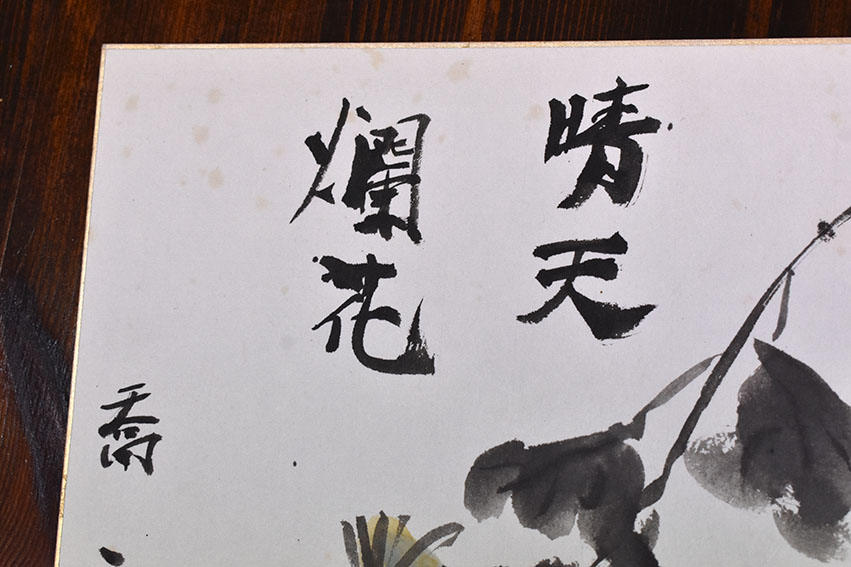 晴天
爛花
喬